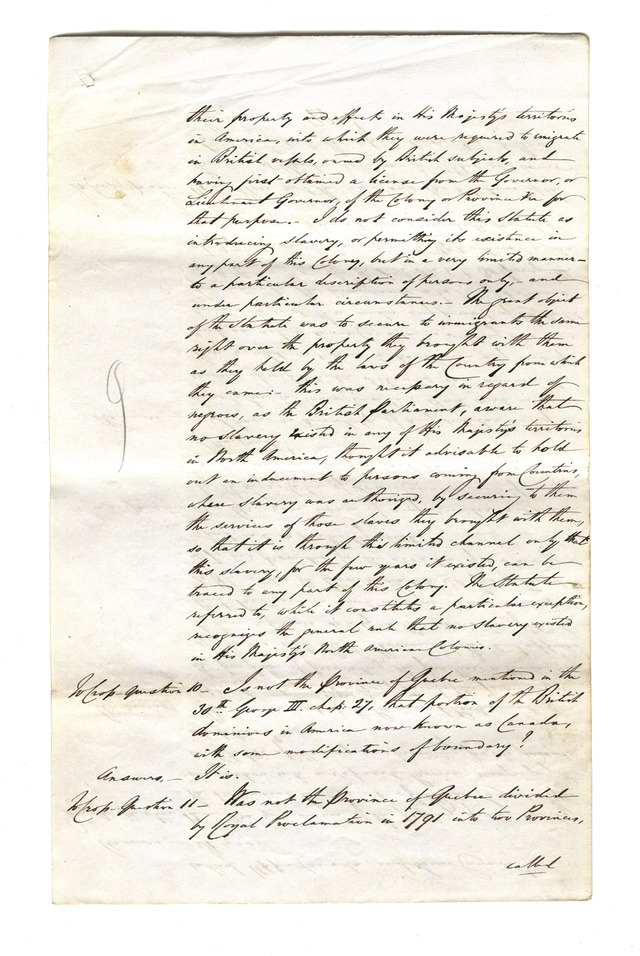 their property and effects in His Majesty's territories
in America, into which they were required to emigrate
in British vessels, owned by British subjects, and
having first obtained a license from the Governor, or
Lieutenant Governor, of the Colony or Province &ca for
that purpose. – I do not consider this Statute as
introducing slavery, or permitting its existence in
any part of this Colony, but in a very limited manner –
to a particular description of persons only, – and
under particular circumstances. – The great object
of the Statute was to secure to immigrants the same
right over the property they brought with them
as they held by the laws of the Country from which
they came: – this was necessary in regard of
negroes, as the British Parliament, aware that
no Slavery existed in any of His Majesty's territories
in North America, thought it advisable to hold
out an inducement to persons coming from Countries,
where slavery was authorized, by securing to them
the services of those slaves they brought with them,
so that it is through this limited channel only that
this slavery, for the few years it existed, can be
traced to any part of this Colony. The Statute
referred to, while it constitutes a particular exception,
recognizes the general rule that no slavery existed
in His Majesty's North American Colonies.
To Crop-Question 10 – Is not the Province of Quebec mentioned in the
30th George III. chap: 27, that portion of the British
dominions in America now known as Canada,
with some modifications of boundary?
Answers. – It is.
To Crop-Question 11 – Was not the Province of Quebec divided
by Royal Proclamation in 1791 into two Provinces,
called
9